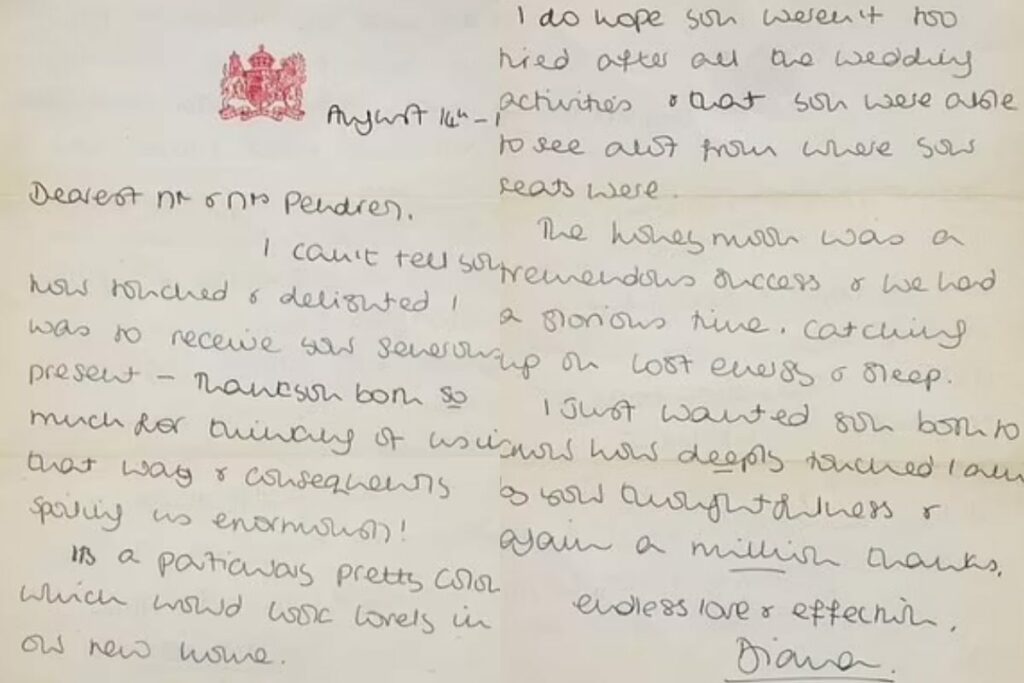 August 14th -
Dearest Mr & Mrs Pendrey.
I can't tell you
how touched & delighted I
was to receive your generous
present - Thankyou both so
much for thinking of us in
that way & consequently
spoiling us enormously!
Its a particularly pretty color
which would look lovely in
our new home.
I do hope you weren't too
tired after all the wedding
activities & that you were able
to see alot from where your
seats were.
The honeymoon was a
tremendous success & we had
a glorious time, catching
up on lost energy & sleep.
I just wanted you both to
know how deeply touched I am
by your thoughtfulness &
again a million thanks.
endless love & affection,
Diana.